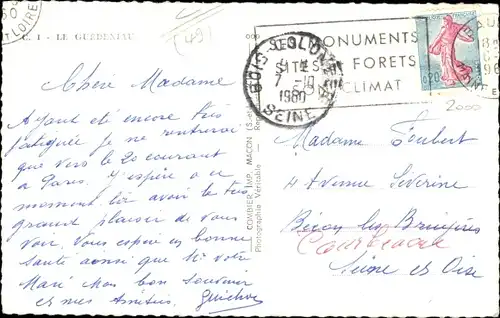 C. 1 - LE GUERDENIAU
(49)
MONUMENTS
SITES FORETS
CLIMAT
BOIS-COLOMBES
7 - 10
1960
SEINE
0,20
2000
Chère Madame
Ayant été encore très
fatiguée je ne rentrerai
que vers le 20 courant
à Paris. J'espère à ce
moment là avoir le très
grand plaisir de vous
voir. Vous espère en bonne
santé ainsi que Mr votre
Mari Mon bon souvenir
et mes Amitiés.
COMBIER IMP. MACON (S-et-
Photographie Véritable —
Madame Joubert
4 Avenue Séverine
Bécon les Bruyères
Courbevoie
Seine et Oise